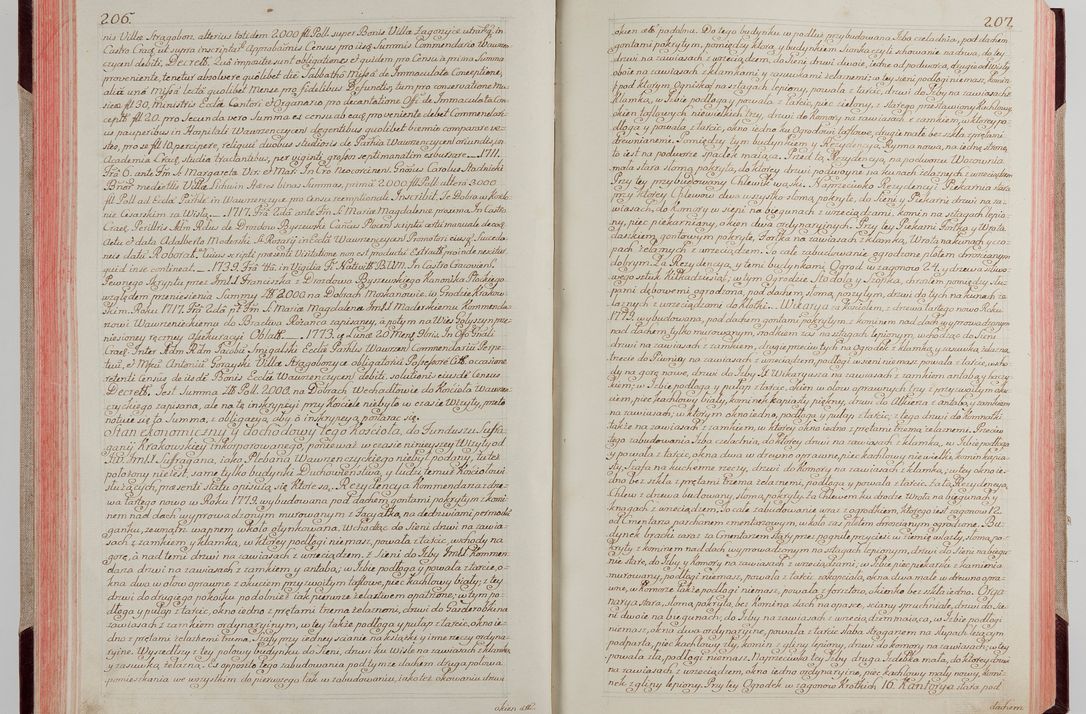 206.
nis Villæ Stragobon. alterius totidem 2000 fl Poll. super Bonis Villæ Zagorzyce utrâq; in
Castro Crac. ut supra inscriptu. Approbamus Census pro iisq. Summis Commendario Wawrzen-
czyceni debiti. Decrett. Quâ impositæ sunt obligationes et quidem pro Censu à prima Summa
proveniente, tenetur absolvere quolibet die Sabbathi Missâ de Immaculata Conceptione,
alià unâ Missâ lectâ quolibet Mense pro fidelibus Defunctis, tum pro conservatione Mu-
sicæ fl 30, ministris Ecclæ Cantori et Organario pro decantatione Offi de Immaculata Con-
cept. fl 20. pro Secunda vero Summa ex censu ab ea proveniente debet Commendari-
us pauperibus in Hospitali Wawrzenczyceni degentibus quolibet biennio comparare ve-
stes, pro 10 percipere, reliqui duobus studiosis de Parhia Wawrzenczyceni oriundis, in
Academia Crac. studia tractantibus, per viginti grossos septimanatim exbursare. 1711.
Frâ 6. ante Fm S. Margareta Vir. et Mar. In Cro Neocorcinen. Gnosus Carolus Stadnicki
Bnor. medietts Villæ Schwin Hæres binas Summas, primâ 2000 fl Poll. altera 3000
fl Poll. ad Eccla Pahle in Wawrzenczyce pro Censu reemptionali Inscribit. Te Dobra w Kordo-
nie Cesarskim za Wisłą. 1717. Frâ 2dâ ante Fm S. Mariæ Magdalenæ proxima. In Castro
Crac. Perillris Adm Rdus de Brzodow Byszewski Canûs Plocen. scripti certi manuale de
Actu et data Adalberto Modenski SS. Rosarij in Eccla Wawrzenczyceni Promotori eiusq. Succeda-
neis dati Roborat. Cuius scripti præsenti Visitatione non est producti Extractt, proinde nescitur
quid in se contineat. 1739. Frâ 4ta. in Vigilia F. Nativitt B.V.M. In Castro Cracovien.
Pewnego Skryptu przez Jmsl Franciszka z Brzozdowa Byszewskiego Kanonika Płockiego
względem przeniesienia Summy Zł 2000 na Dobrach Moskanowie, w Grodzie Krakow-
skim. Roku 1717. Frâ 2dâ p. Fm S. Mariæ Magdalenæ Jmsl Maderskiemu Kommenda-
nowi Wawrzenickiemu do Bractwa Rożańca zapisaney, a potym na Wieś Gołyszyn prze-
niesioney ręczney Assekuracyi Oblatt. 1773. in Luna 20. Mens. Jbris. In Offo Gnali
Crac. Inter Adm Rdm Jacobû Smygalski Ecclæ Parhlis Wawrzen. Commendariû Perpe-
tuû, et Mgcû Antoniû Gorayski Villæ Stragoborzyce obligatoriû Possessorê Citt. occasione
retenti Census de iisdê Bonis Ecclæ Wawrzenczyceni debiti. Solutioni eiusdê Census
Decrett. Jest Summa Złt Poll. 2000. na Dobrach Wechadłowie do Kościoła Wawrzen-
czyckiego zapisana, ale na tę inskrypcyi przy Kościele niebyło w czasie Wizyty, przeto
notuje się ta Summa, z obligacyą, aby o inskrypcyą postarać się.
Stan ekonomiczny y dochodowy tego Kościoła, do Funduszu Suffra-
gany Krakowskiey inkorporowanego, ponieważ w czasie ninieyszey Wizyty od
JW. Jmsl Suffragana, iako Plebana Wawrzenczyckiego niebył podany, tu też
położone iest same tylko budynki Duchowieństwa, y ludzi temuż Kościołowi
służących, præsenti statu opisują się, które są. Rezydencya Kommendana z drze-
wa całego nowo w Roku 1779. wybudowana, pod dachem gontami pokrytym z komi-
nem nad dach wyprowadzonym murowanym z facyatką, na dedrzwiami, pełmodół
ganku, zewnątrz wapnem biało otynkowana. Wchodząc do Sieni drzwi na zawia-
sach z zamkiem y klamką, w którey podłogi niemasz, powała z tarcic, wschody na
gorę, a nad temi drzwi na zawiasach z wrzeciądzem. Z Sieni do Izby Jmsl Kommen-
darza drzwi na zawiasach z zamkiem y antabą; w Izbie podłoga y powała z tarcic, o-
kna dwa w ołow oprawne z okuciem przyzwoitym taflowe, piec kachlowy biały; z tey
drzwi do drugiego pokoiku podobnież iak pierwsze żelastwem opatrzone; w tym po-
dłoga y pułap z tarcic, okno iedno z prętami trzema żelaznemi, drzwi do Garderobki na
zawiasach z zamkiem ordynaryinym, w tey także podłoga y pułap z tarcic, okno ie-
dno z prętami żelaznemi trzema, Szafy przy iedney scianie na książki y inne rzeczy ordyna-
ryine. Wyszedłszy z tey połowy budynku do Sieni, drzwi ku Wiśle na zawiasach z klamką
y zasuwką, żelazne. Ex opposito tego zabudowania pod tymże dachem druga połowa
pomieszkania we wszystkim do pierwszego tak w zabudowaniu, iako też okowaniu drzwi
okien etc.
207.
okien etc podobna. Do tego budynku w podłuż przybudowana Izba czeladnia, pod dachem
gontami pokrytym, pomiędzy którą y budynkiem Sionka czyli schowanie na drwa, do tey
drzwi na zawiasach z wrzeciądzem, do Sieni drzwi dwoie, iedne od podworca, drugie od Wisły
oboie na zawiasach z klamkami y zasuwkami żelaznemi; w tey sieni podłogi niemasz, komin
pod którym Ognisko, na sztagach lepiony, powała z tarcic, drzwi do Izby na zawiasach z
klamką, w Izbie podłoga y powała z tarcic, piec zielony, z starego przestawiony kachlowy
okien taflowych niewielkich trzy, drzwi do komory na zawiasach z zamkiem, w ktorey po-
dłoga y powała z tarcic, okno iedno ku Ogrodowi taflowe, drugie małe bez szkła z prętami
drewnianemi. Pomiędzy tym budynkiem y Rezydencyą Ryma nowa, na iedną stronę,
to iest na podworze spadek maiąca. Przed tą Rezydencyą, na podworzu Wozownia
mała stara słomą pokryta, do ktorey drzwi podwoyne na kunach żelaznych z wrzeciądzem
Przy tey przybudowany Chlewik wązki. Naprzeciwko Rezydencyi Piekarnia stara
przy ktorey Chlewow dwa wszystko słomą pokryte, do Sieni y Piekarni drzwi na za-
wiasach, do Komory w sieni na biegunach z wrzeciądzami, komin na sztagach lepio-
ny, piec piekarniany, okien dwa ordynaryinych. Przy tey Piekarni Fortka y Wrota
daszkiem gontowym pokryte, Fortka na zawiasach z klamką, Wrota na kunach y czo-
pach żelaznych z wrzeciądzem. To całe zabudowanie ogrodzone płotem chroscianym
dobrym. Za Rezydencyą, y temi budynkami Ogrod w zagonow 24. y drzewa śliwo-
wego sztuk kilkadziesiąt, w tym Ogrodzie Stodoła y Szopka, chrostem pomiędzy słu-
pami dębowemi ogrodzona, pod dachem słomą poszytym, drzwi do tych na kunach że-
laznych z wrzeciądzami do kłotki. Wikarya za Kościołem, z drzewa tartego nowo Roku
1779. wybudowana, pod dachem gontami pokrytym, z kominem nad dach wyprowadzonym
nad dachem tylko murowanym, srodkiem zaś na sztagach lepionym, wchodząc do Sieni
drzwi na zawiasach z zamkiem, drugie przeciw tych na Ogrodek z klamką y zasuwką żelazną,
trzecie do Piwnicy na zawiasach z wrzeciądzem, podłogi w sieni niemasz, powała z tarcic, wscho-
dy na gorę nowe, drzwi do Izby JX Wikaryusza na zawiasach z zamkiem antabą y łaczy-
dłem; w Izbie podłoga y pułap z tarcic, okien w ołow oprawnych trzy z przyzwoitym oku-
ciem, piec kachlowy biały, kominek kapiasty piękny, drzwi do Alkierza z antabą, y zamkiem
na zawiasach; w ktorym okno iedno, podłoga y pułap z tarcic; z tego drzwi do komnatki
także na zawiasach z zamkiem, w ktorey okno iedno z prętami trzema żelaznemi. Przeciw
tego zabudowania Izba czeladnia, do ktorey drzwi na zawiasach z klamką, w Izbie podłoga
y powała z tarcic, okna dwa w drzewno oprawne, piec kachlowy niewielki, komin kapia-
sty, Szafa na kuchenne rzeczy, drzwi do Komory na zawiasach z klamką; w tey okno ie-
dno bez szkła z prętami trzema żelaznemi, podłoga y powała z tarcic. Za tą Rezydencyą,
Chlew z drzewa budowany, słomą pokryty. Za Chlewem ku drodze Wrota na biegunach y
knagach z wrzeciądzem. To całe zabudowanie wraz z ogrodkiem, ktorego iest zagonow 12.
od Cmentarza parchanem cmentarzowym, w koło zaś płotem chroscianym ogrodzone. Bu-
dynek bracki zaraz za Cmentarzem stary przez pogniłe przyciesi w ziemię wlazły, słomą po-
kryty, z kominem nad dach wyprowadzonym na sztagach lepionym, drzwi do Sieni na biegu-
nie stare, do Izby y Komory na zawiasach z wrzeciądzami, w Izbie piec piekarski z kamienia
murowany, podłogi niemasz, powała z tarcic zakopciała, okna dwa małe w drzewno opra-
wne, w komorze także podłogi niemasz, powała z forsztow, okienko bez szkła iedno. Orga-
narya stara, słomą pokryta, bez komina, dach na opasce, sciany spruchniałe, drzwi do Sie-
ni dwoie na biegunach; do Izby na zawiasach z wrzeciądzem maiąca, w Izbie podłogi
niemasz, okna dwa ordynaryine, powała z tarcic słaba stragarzem na słupach leżącym
podparta, piec kachlowy zły, komin z gliny lepiony, drzwi do komory na zawiasach; w tey
powała zła, podłogi niemasz. Naprzeciwko tey Izby druga Izdebka mała, do ktorey drzwi
na zawiasach z wrzeciądzem, okno iedno ordynaryine, piec kachlowy mały nowy, komi-
nek z gliny lepiony. Przy tey Ogrodek w zagonow Krotkich 16. Kantorya stara, pod
dachem